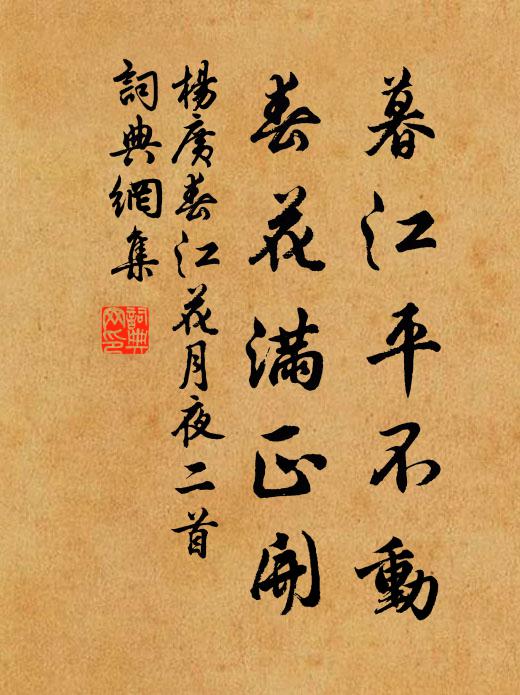 暮江平不動
春花滿正開
楊廣春江花月夜二首
詞典網集
詞典網印